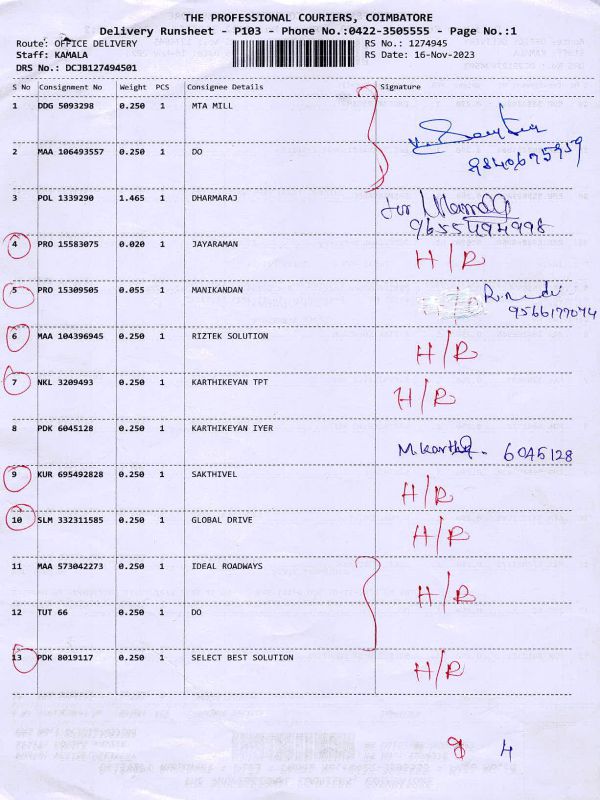 THE PROFESSIONAL COURIERS, COIMBATORE
Delivery Runsheet - P103 - Phone No.:0422-3505555 - Page No.:1
Route: OFFICE DELIVERY RS No.: 1274945
Staff: KAMALA RS Date: 16-Nov-2023
DRS No.: DCJB127494501
S No Consignment No Weight PCS Consignee Details Signature
1 DDG 5093298 0.250 1 MTA MILL
2 MAA 106493557 0.250 1 DO
9840675959
3 POL 1339290 1.465 1 DHARMARAJ for
9655494998
4 PRO 15583075 0.020 1 JAYARAMAN H/R
5 PRO 15309505 0.055 1 MANIKANDAN H/R
9566177074
6 MAA 104396945 0.250 1 RIZTEK SOLUTION H/R
7 NKL 3209493 0.250 1 KARTHIKEYAN TPT H/R
8 PDK 6045128 0.250 1 KARTHIKEYAN IYER M. Karthik. 6045128
9 KUR 695492828 0.250 1 SAKTHIVEL H/R
10 SLM 332311585 0.250 1 GLOBAL DRIVE H/R
11 MAA 573042273 0.250 1 IDEAL ROADWAYS H/R
12 TUT 66 0.250 1 DO
13 PDK 8019117 0.250 1 SELECT BEST SOLUTION H/R
4